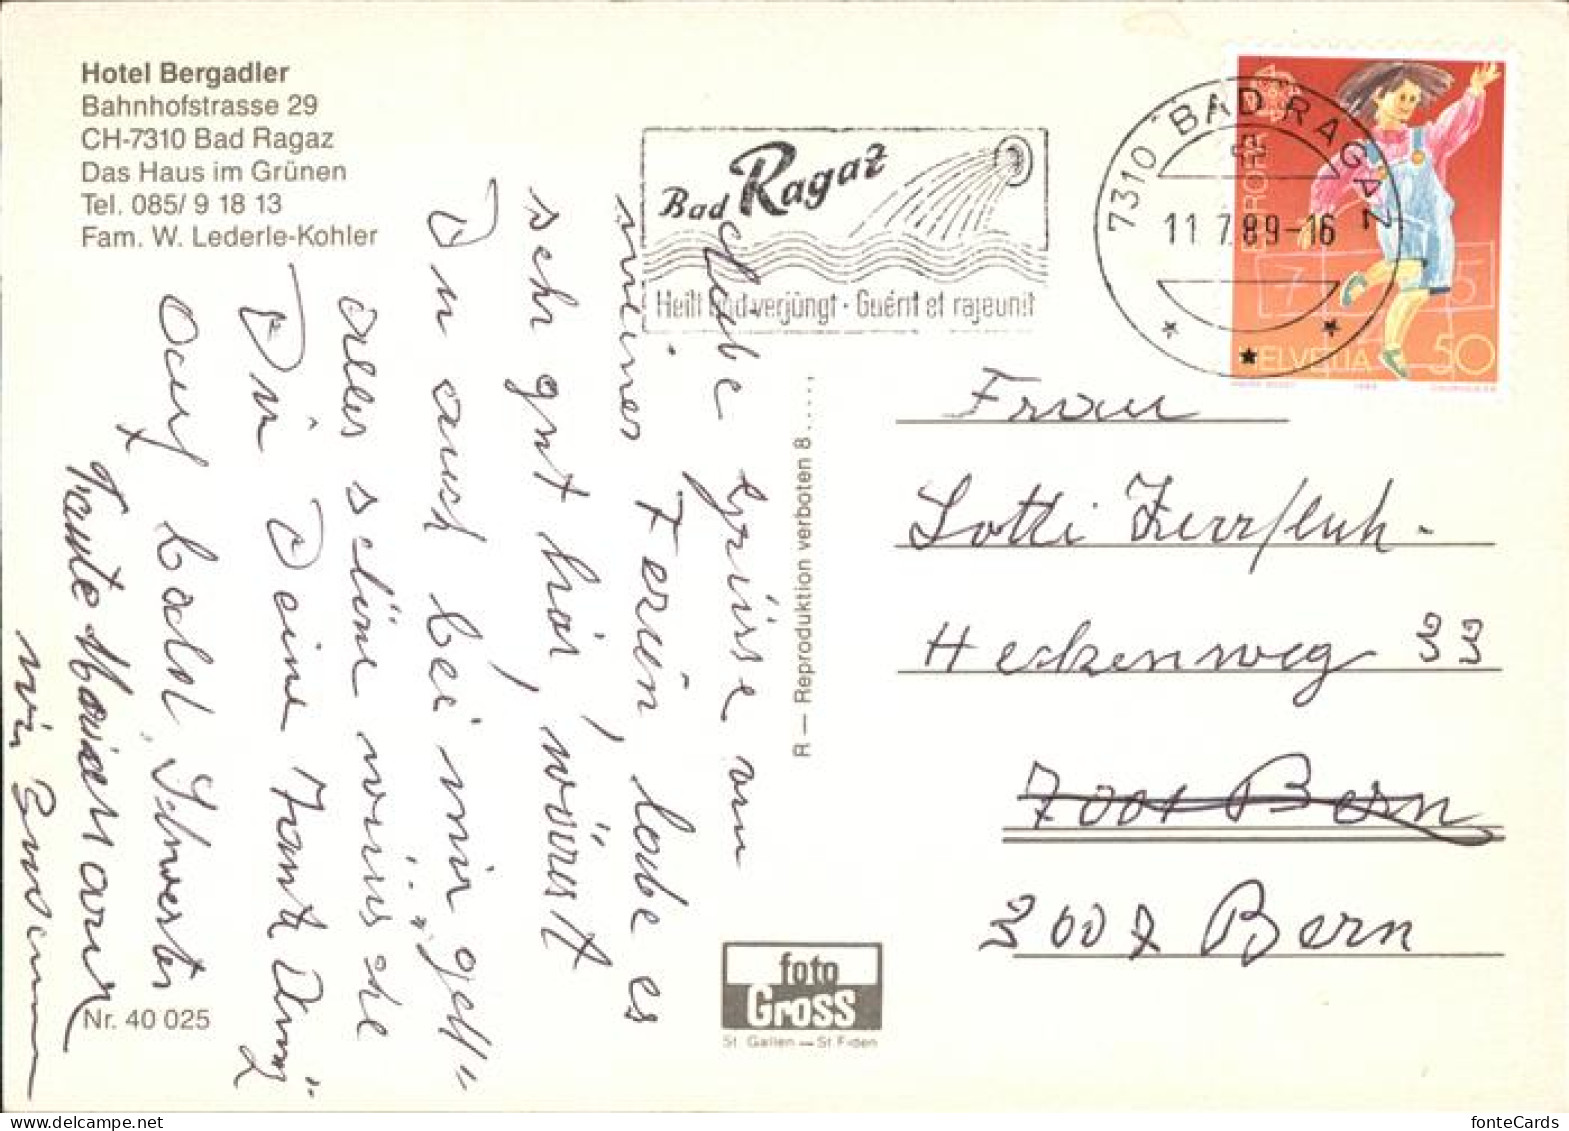 Hotel Bergadler
Bahnhofstrasse 29
CH-7310 Bad Ragaz
Das Haus im Grünen
Tel. 085/ 9 18 13
Fam. W. Lederle-Kohler
Bad Ragaz
Heilt und verjüngt · Guérit et rajeunit
7310 BAD RAGAZ
11.7.89-16
EUROPA
7 5
HELVETIA 50
Liebe Grüsse von
meinen Ferien, habe es
sehr gut hier, wärst
Du auch bei mir "gell"
alles schöne wünsche
Dir Deine
auf bald, Schwester
Tante
wir
R — Reproduktion verboten 8.....
Frau
Lotti
Heckenweg 33
7001 Bern
3007 Bern
foto
Gross
St. Gallen — St. Fiden
Nr. 40 025
fonteCards